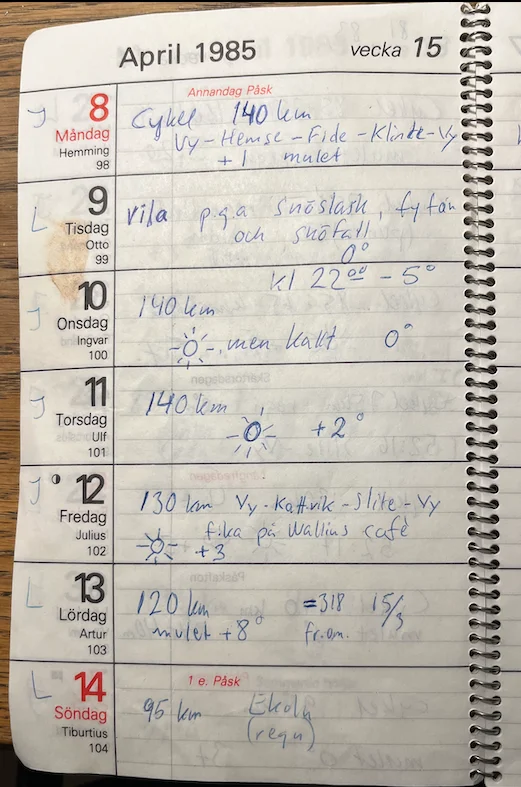 April 1985 vecka 15
J 8 Annandag Påsk
Måndag Cykel 140 km
Hemming Vy-Hemse-Fide-Klinte-Vy
98 +1 mulet
L 9 vila p.g.a snöslask, fy fan
Tisdag och snöfall
Otto 0°
99
kl 22⁰⁰ -5°
J 10 140 km
Onsdag
Ingvar men kallt 0°
100
J 11 140 km
Torsdag +2°
Ulf
101
J 12 130 km Vy-Kattvik-Slite-Vy
Fredag fika på Wallins café
Julius +3
102
L 13 120 km =318 15/3
Lördag mulet +8° fr.om.
Artur
103
L 14 1 e. Påsk
Söndag 95 km
Tiburtius (regn)
104